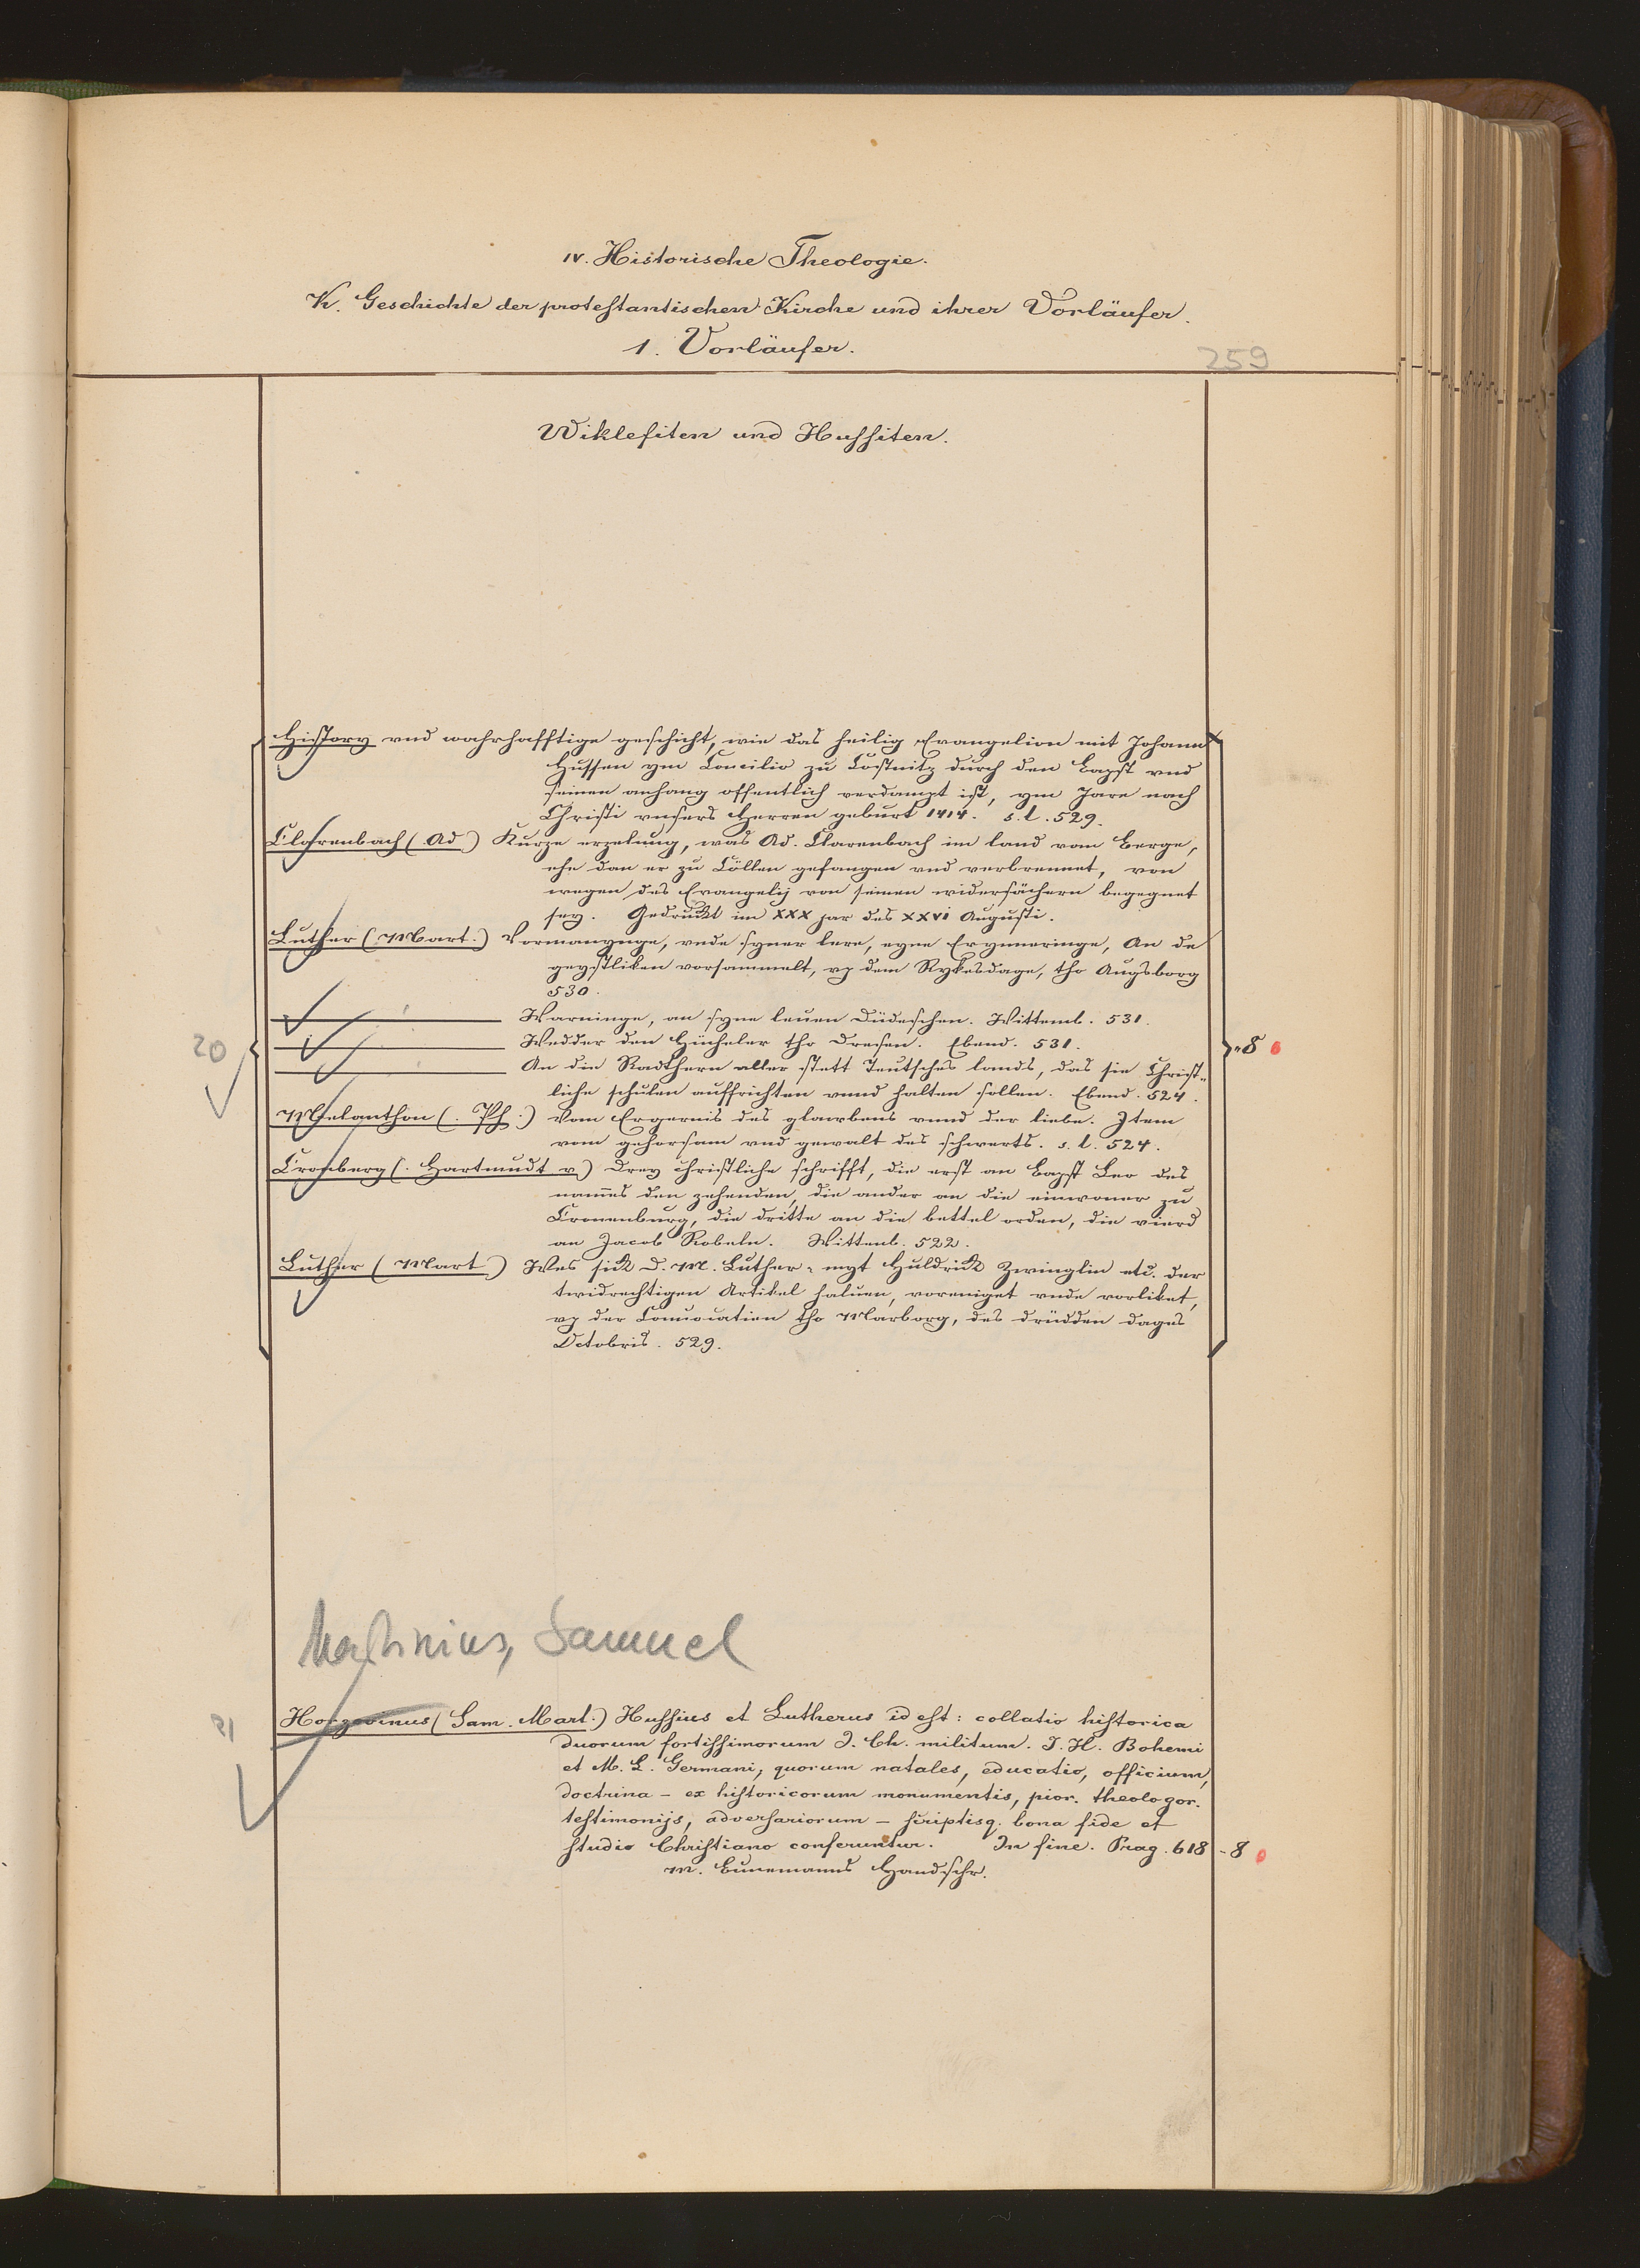 IV. Historische Theologie.
K. Geschichte der protestantischen Kirche und ihrer Vorläufer.
1. Vorläufer.
259
Wiklefiten und Hussiten.
History vnd wahrhafftige geschicht, wie das heilig Evangelion mit Johann
Hussen ym Concilio zu Costnitz durch den Bapst vnd
seinen anhang offentlich verdampt ist, ym Jare nach
Christi vnsers Herren geburt 1414. s. l. 529.
Clarenbach (Ad.) Kurze erzelung, was Ad. Clarenbach im land vom Berge,
ehe dan er zu Cöllen gefangen vnd verbrennet, von
wegen des Evangelij von seinen widersächern begegnet
sey. Gedruckt im XXX jar des XXVI Augusti.
Luther (Mart.) Vormanynge, vnde syner lere, eyne Erynneringe, An de
geystliken vorsammelt, vp dem Rykesdage, tho Augsborg
530.
Warninge, an syne leuen Düdeschen. Wittemb. 531.
20
Wedder den Hücheler tho Dresen. Ebend. 531.
-8
An die Radthern aller stett Teutsches lands, das sie Christ-
liche schulen auffrichten vnnd halten sollen. Ebend. 524.
Melanthon (Ph.) Vom Ergernis des glawbens vnnd der liebe. Item
vom gehorsam vnd gewalt des schwerts. s. l. 524.
Cronberg (Hartmudt v.) Drey christliche schrifft, die erst an Bapst Leo des
nam̄es den zehenden, die ander an die einwoner zu
Cronenburg, die dritte an die bettel orden, die vierd
an Jacob Kobeln. Wittenb. 522.
Luther (Mart.) Wes sick D. M. Luther myt Huldrick Zwinglin etc. der
twidrechtigen Artikel haluen, voreniget vnde vorliket,
vp der Conuocation tho Marborg, des drüdden dages
Octobris. 529.
Martinius, Samuel
21
Horzovinus (Sam. Mart.) Hussius et Lutherus id est: collatio historica
duorum fortissimorum J. Ch. militum. J. H. Bohemi
et M. L. Germani, quorum natales, educatio, officium,
doctrina - ex historicorum monumentis, pior. theologor.
testimonijs, adversariorum - scriptisq. bona fide et
studio Christiano conferuntur. In fine. Prag. 618 -8
M. Bunemanns Handschr.